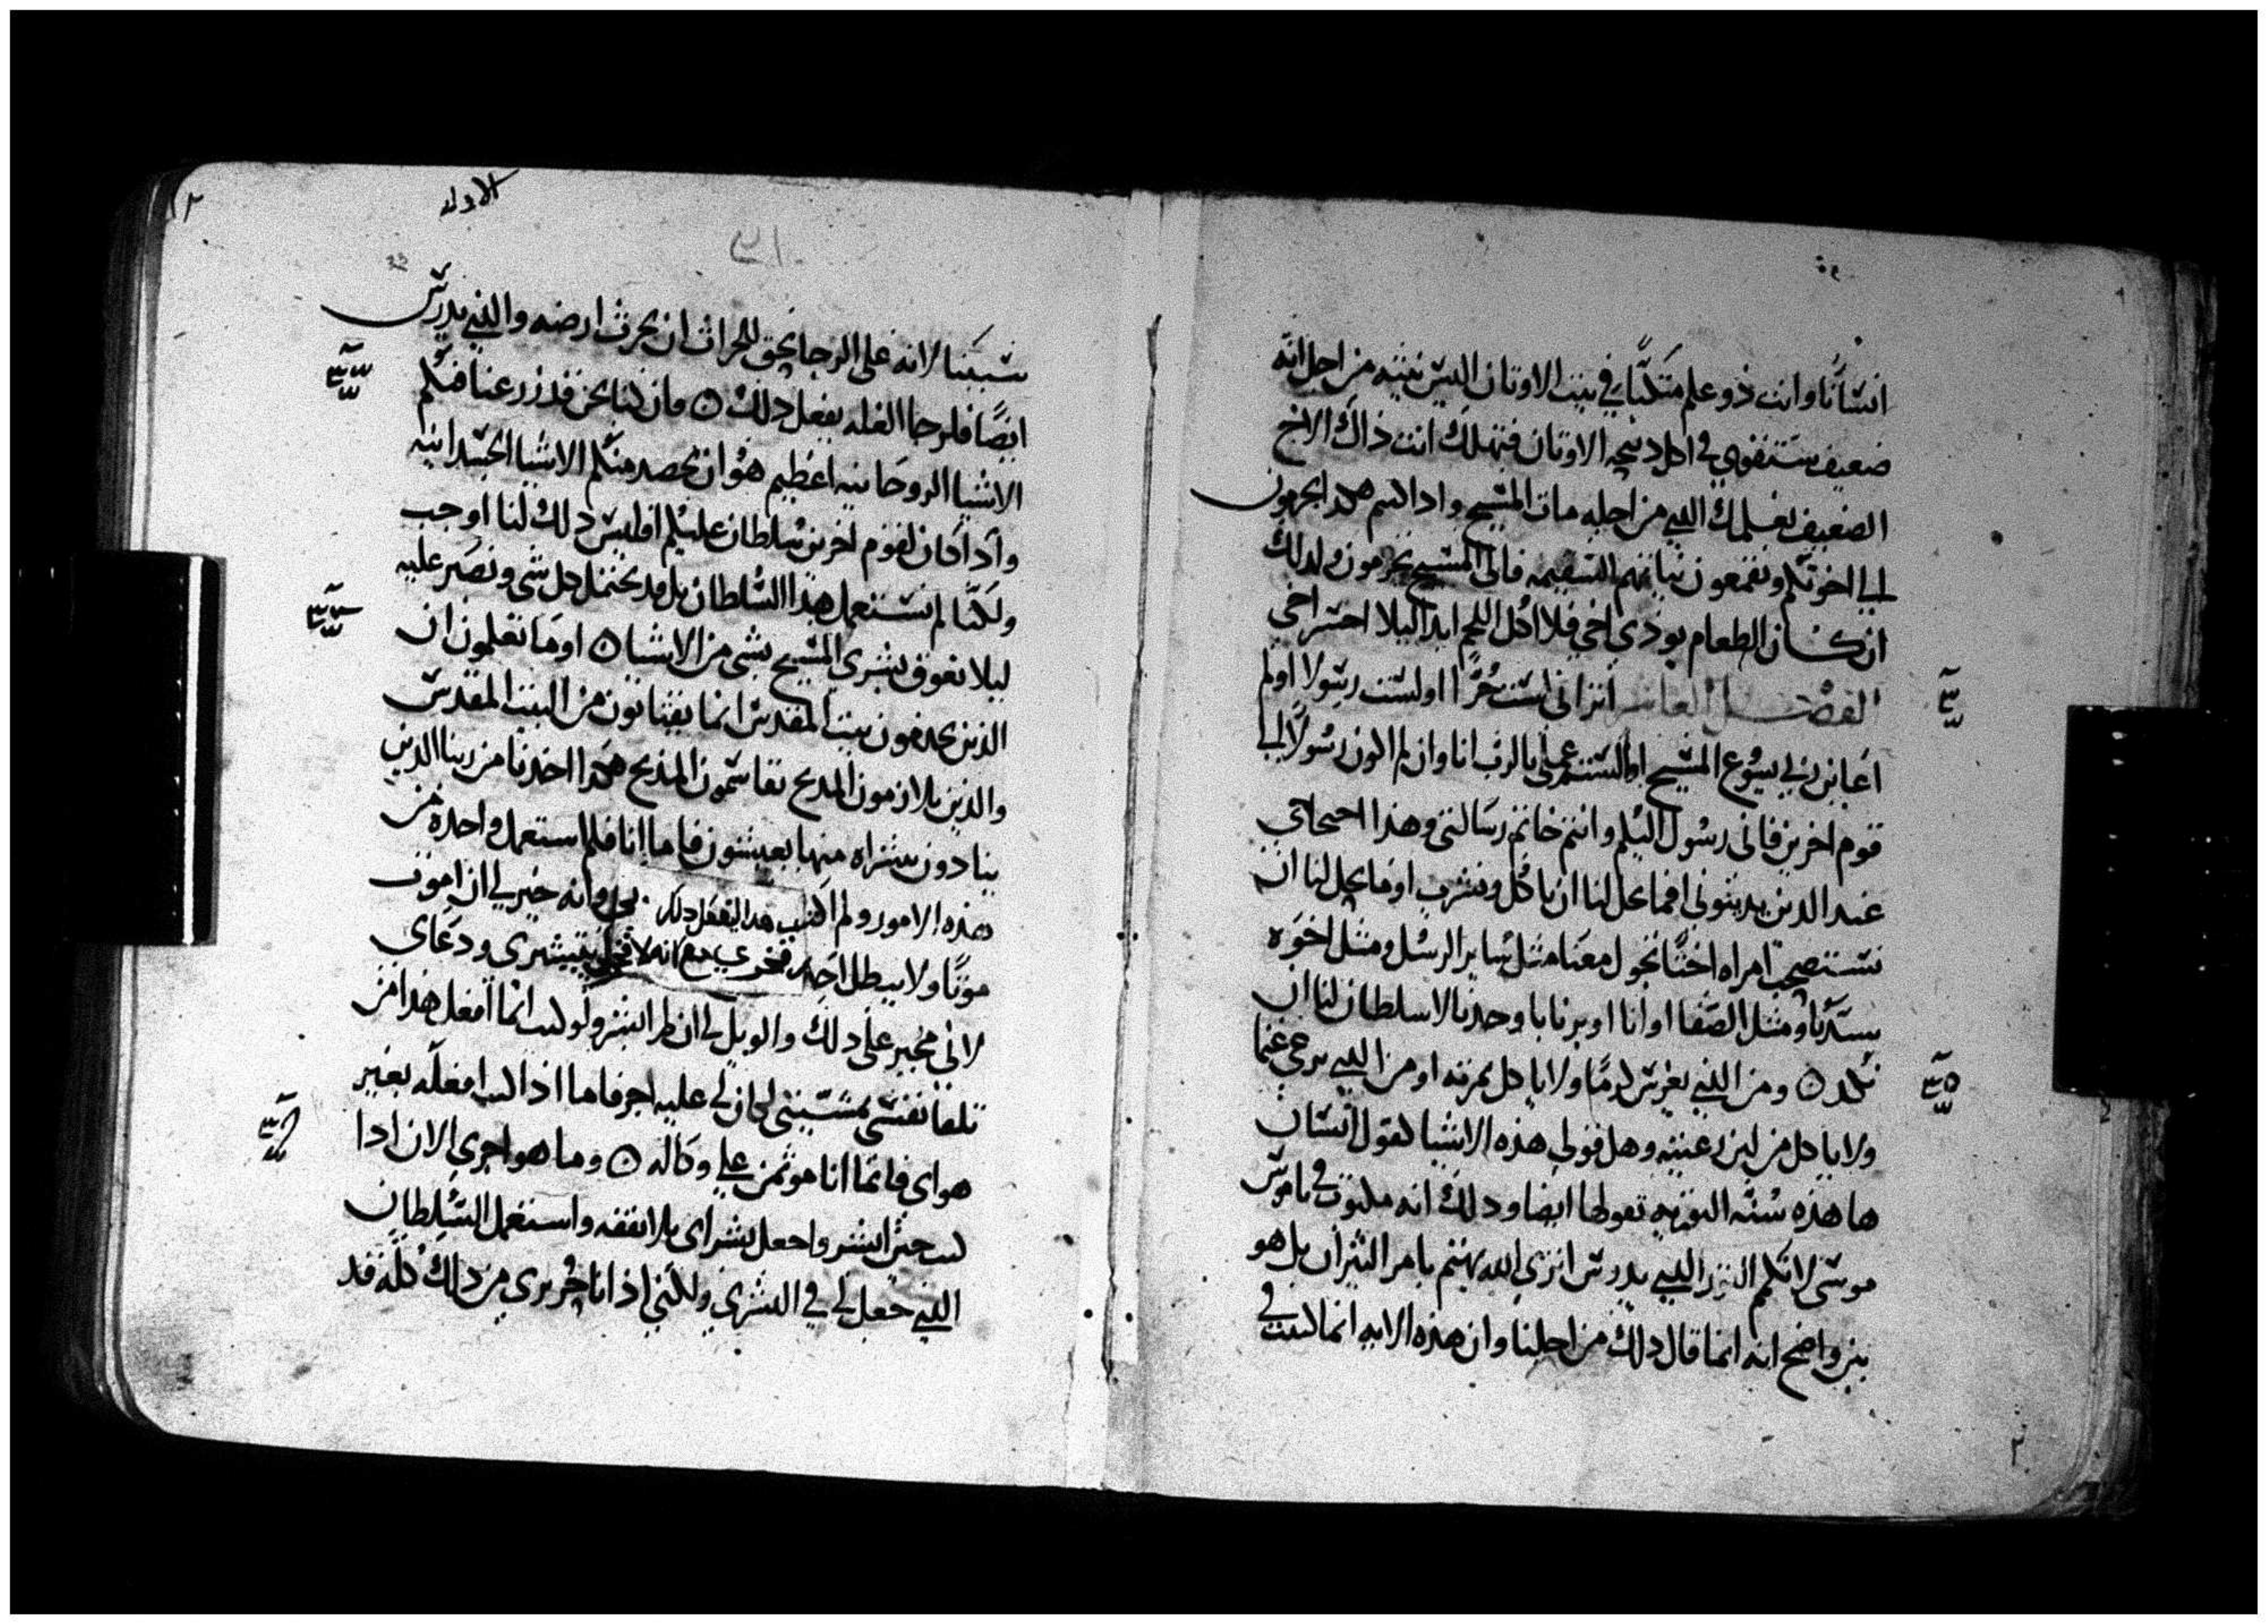 انسانا وانت ذو علم متكيا في بيت الاوتان اليس نيته من اجل انه
ضعيف ستتقوي في اكل دبيحه الاوتان فتهلك انت ذاك الاخ
الضعيف بعلمك الذي من اجله مات المسيح واذا كنتم هكدا تجرمون
الي اخوتكم وتقمعون نياتهم السقيمه فالي المسيح تجرمون ولدلك
ان كان الطعام يوذي اخي فلا اكل اللحم ابدا ليلا اخسر اخي
الفصل العاشر اتراني لست حرا او لست رسولا اولم
اعاين ربي يسوع المسيح او لستم عملي بالرب انا وان لم اكون رسولا الي
قوم اخرين فاني رسول اليكم وانتم خاتم رسالتي وهذا احتجاجي
عند الدين يدينوني افما يحل لنا ان ناكل ونشرب اوما يحل لنا ان
نستصحب امراه اختا تجول معنا مثل ساير الرسل ومثل اخوه
سيدنا ومثل الصفا او انا او برنابا وحدنا لا سلطان لنا ان
نكد ومن الذي يغرس كرما ولا ياكل تمرته او من الذي يرعي غنما
ولا ياكل من لبن رعيته وهل قولي هذه الاشيا كقول انسان
ها هذه سنه التوريه تقولها ايضا ودلك انه مكتوب في ناموس
موسي لا تكم الثور الذي يدرس اتري الله يهتم بامر الثيران بل هو
بين واضح انه انما قال دلك من اجلنا وان هذه الايه انما كتبت في
الاولي
سببنا لانه علي الرجا يحق للحراث ان يحرث ارضه والذي يدرس
ايضا فلرجا الغله يفعل دلك فان كنا نحن قد زرعنا فيكم
الاشيا الروحانيه اعظيم هو ان نحصد منكم الاشيا الجسدانيه
واذا كان لقوم اخرين سلطان عليكم افليس دلك لنا اوجب
ولكنا لم نستعمل هذا السلطان بل قد نحتمل كل شي ونصبر عليه
ليلا نعوق بشري المسيح بشي من الاشيا اوما تعلمون ان
الذين يخدمون بيت المقدس انما يقتاتون من البيت المقدس
والذين يلازمون المدبح يقاسمون المذبح هكدا اخدنا من ربنا الدين
ينادون بشراه منها يعيشون فاما انا فلم استعمل واحده من
هذه الامور ولم اكتب هدا ليفعل دلك بي وانه خير لي ان اموت
موتا ولا يبطل احد فخري مع انه لا فخر لي بتبشيري ودعاي
لاني مجبر علي دلك والويل لي ان لم ابشر ولو كنت انما افعل هدا من
تلقا نفسي بمشيتي لكان لي عليه اجر فاما اذا كنت افعله بغير
هواي فانما انا موتمن علي وكاله وما هو اجري الان ادا
كنت حين ابشر واجعل بشراي بلا نفقه واستعمل السلطان
الذي جعل لي في البشري ولكني اذ انا حر بري من دلك كله قد